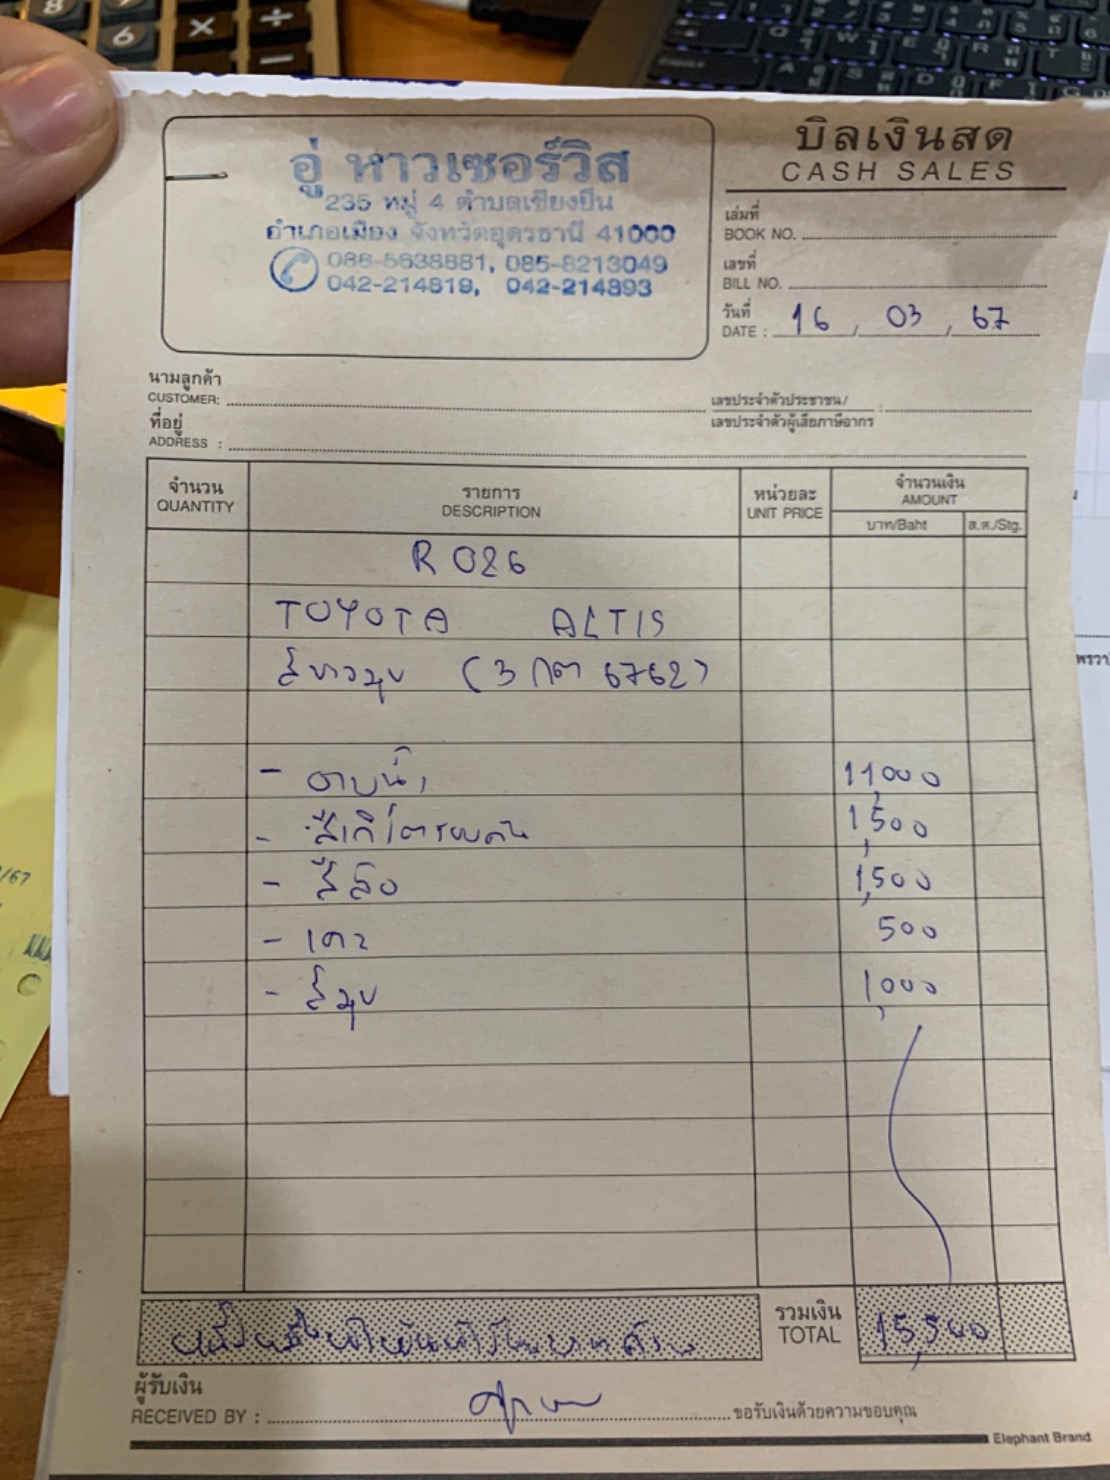 บิลเงินสด
CASH SALES
อู่ หาวเซอร์วิส
235 หมู่ 4 ตำบลเชียงยืน
อำเภอเมือง จังหวัดอุดรธานี 41000
086-5638881, 085-8213049
042-214819, 042-214893
เล่มที่
BOOK NO.
เลขที่
BILL NO.
วันที่
DATE : 16 / 03 / 67
นามลูกค้า
CUSTOMER:
เลขประจำตัวประชาชน/
เลขประจำตัวผู้เสียภาษีอากร :
ที่อยู่
ADDRESS :
จำนวน
QUANTITY
รายการ
DESCRIPTION
หน่วยละ
UNIT PRICE
จำนวนเงิน
AMOUNT
บาท/Baht
ส.ต./Stg.
R 026
TOYOTA ALTIS
สีขาวมุข (3 กต 6762)
- อาบน้ำ 11,000
- สีเก็โตรอบคัน 1,500
- สีล้อ 1,500
- เคว 500
- สีมุข 1,000
รวมเงิน
TOTAL 15,500
ผู้รับเงิน
RECEIVED BY :
ขอรับเงินด้วยความขอบคุณ
Elephant Brand